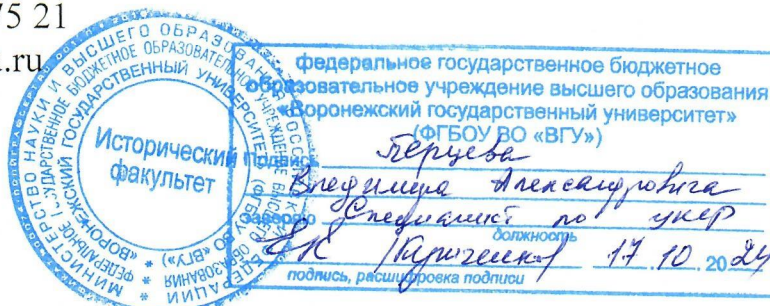 75 21
.ru
МИНИСТЕРСТВО НАУКИ И ВЫСШЕГО ОБРАЗОВАНИЯ РОССИЙСКОЙ ФЕДЕРАЦИИ
ФЕДЕРАЛЬНОЕ ГОСУДАРСТВЕННОЕ БЮДЖЕТНОЕ ОБРАЗОВАТЕЛЬНОЕ УЧРЕЖДЕНИЕ ВЫСШЕГО ОБРАЗОВАНИЯ
«ВОРОНЕЖСКИЙ ГОСУДАРСТВЕННЫЙ УНИВЕРСИТЕТ» (ФГБОУ ВО «ВГУ»)
Исторический
факультет
федеральное государственное бюджетное
образовательное учреждение высшего образования
«Воронежский государственный университет»
(ФГБОУ ВО «ВГУ»)
Подпись Перцева
Владимира Александровича
заверяю Специалист по
должность
17.10.2024
подпись, расшифровка подписи